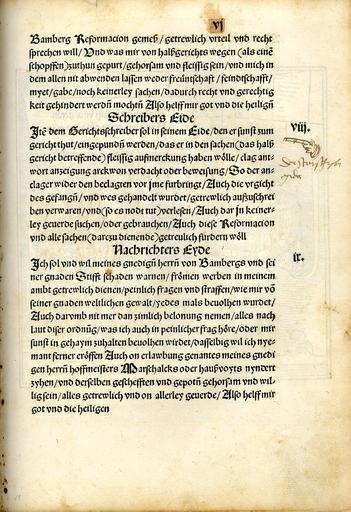 vj
Bamberg Reformacion gemeß/getrewlich vrteil vnd recht
sprechen will/Vnd was mir von halßgerichts wegen (als einē
schopffen) zuthun gepurt/gehorsam vnd fleissig sein/vnd mich in
dem allen nit abwenden lassen weder freüntschafft/feindtschafft/
myet/gabe/noch keinerley sachen/dadurch recht vnd gerechtig
keit gehindert werdñ mochtñ Also helff mir got vnd die heiligñ
Schreibers Eide
Jtē dem Gerichtsschreiber sol in seinem Eide/den er sunst zum
gericht thut/eingepundñ werden/das er in den sachen (das halß
gericht betreffende) fleissig aufmerckung haben wölle/clag ant-
wort anzeigung arckwon verdacht oder beweisung/So der an-
clager wider den beclagten vor jme furbringt/Auch die vrgicht
des gefangñ/vnd wes gehandelt wurdet/getrewlich auffzuschrei
ben verwaren/vnd (so es nodt tut) verlesen/Auch dar jn keiner-
ley geuerde suchen/oder gebrauchen/Auch diese Reformacion
vnd alle sachen (darzu dienende) getreulich fürdern wöll
viij.
Nachrichters Eyde
Jch sol vnd wil meines gnedigñ herrñ von Bambergs vnd sei
ner gnaden Stifft schaden warnen/frömen werben in meinem
ambt getrewlich dienen/peinlich fragen vnd straffen/wie mir vō
seiner gnaden weltlichen gewalt/yedes mals beuolhen wurdet/
Auch darvmb nit mer dan zimlich belonung nemen/alles nach
laut diser ordnüg/was ich auch in peinlicher frag höre/oder mir
sunst in geheym zuhalten beuolhen wirdet/dasselbig wil ich nye-
mant ferner eröffen Auch on erlawbung genantes meines gnedi
gen herrñ hoffmeisters Marschalcks oder haußvoyts nyndert
zyhen/vnd derselben geschefften vnd gepotñ gehorsam vnd wil-
lig sein/alles getrewlich vnd on allerley geuerde/Also helff mir
got vnd die heiligen
ix.